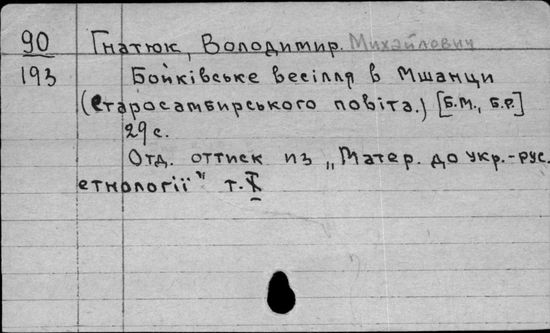 90 Гнатюк, Володимир. Михайлович
193 Бойківське весілля в Мшанци
(Старосамбирського повіта.) [Б.М., Б.Р.]
29 с.
Отд. оттиск из „Матер. до укр.-рус.
етнології" т. X